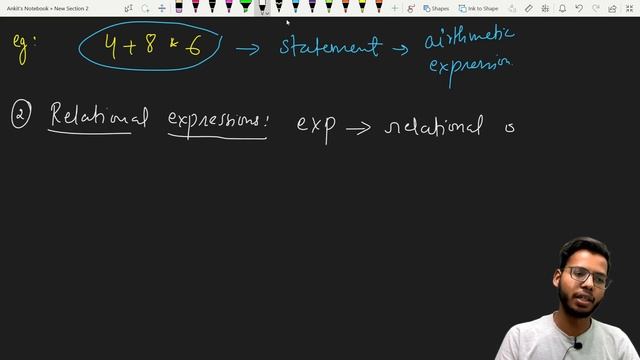 Ankit's Notebook » New Section 2
Shapes
Ink to Shape
eg: 4 + 8 * 6 → statement → airthmetic
expression.
② Relational expressions: exp → relational o